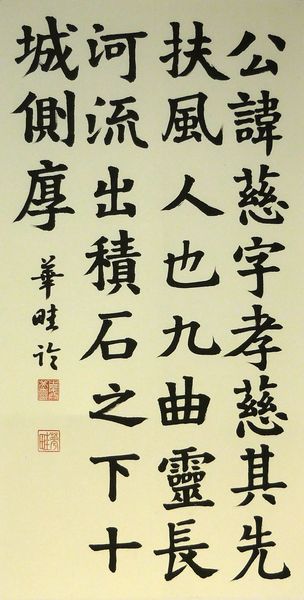 公諱慈字孝慈其先
扶風人也九曲靈長
河流出積石之下十
城側厚
華畦臨